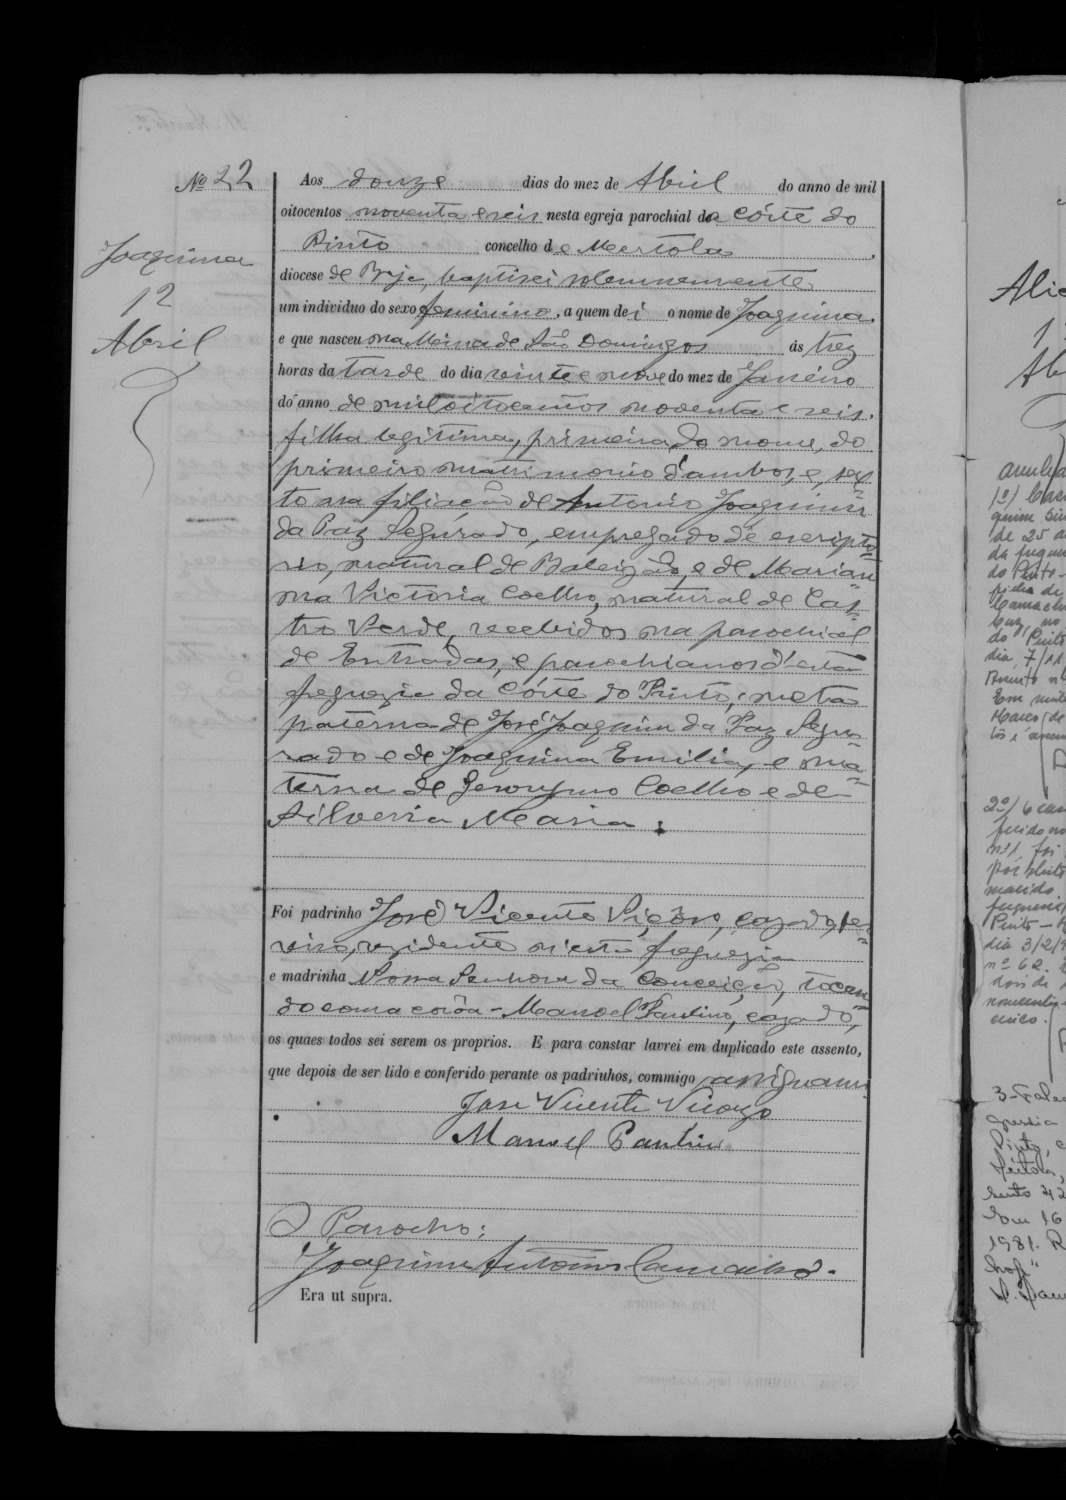 Nº 22
Joaquina
12
Abril
Aos douze dias do mez de Abril do anno de mil
oitocentos noventa e seis nesta egreja parochial da Côrte do
Pinto concelho de Mertola,
diocese de Beja, baptisei solemnemente
um individuo do sexo feminino, a quem dei o nome de Joaquina,
e que nasceu na Meina de São Domingos ás trez
horas da tarde do dia vinte e nove do mez de Janeiro
do anno de mil oitocentos noventa e seis.
filha legitima, primeira do nome, do
primeiro matrimonio d'ambos, e, sex
to na filiação de Antonio Joaquim
da Paz Segurado, empregado de escripto
rio, natural de Baleizão, e de Marian
na Victoria Coelho, natural de Cas
tro Verde, recebidos na parochial
de Entradas, e parochianos d'esta
freguezia da Côrte do Pinto; neta
paterna de José Joaquim da Paz Segu
rado e de Joaquina Emilia, e ma
terna de Jeronymo Coelho e de
Silveria Maria:
Foi padrinho José Vicente Viçôso, cazado,
rezidente n'esta freguezia
e madrinha Nossa Senhora da Conceição, tocan
do com a corôa - Manoel Pantino, cazado,
os quaes todos sei serem os proprios. E para constar lavrei em duplicado este assento,
que depois de ser lido e conferido perante os padrinhos, commigo assignam
Jose Vicente Viçozo
Manoel Pantino
O Parocho:
Joaquim Antonio Camacho.
Era ut supra.
1º)
de 25
do Pinto
do Pinto
dia 7/11
2º)
nº 1 foi
marido
Pinto
dia 3/2/
nº 62.
3-
1981.